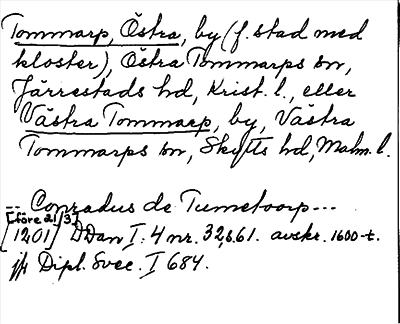 Tommarp, Östra, by (f. stad med
kloster), Östra Tommarps sn,
Järrestads hd, Krist. l., eller
Västra Tommarp, by, Västra
Tommarps sn, Skytts hd, Malm. l.
-- Conradus de Tumetoorp ---
[före 21/3]
[1201] DDan I: 4 nr. 32, s. 61. avskr. 1600-t.
jfr Dipl. Svec. I 684.